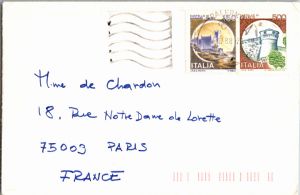 500
ITALIA ITALIA
Mme de Chardon
18, Rue Notre Dame de Lorette
75003 PARIS
FRANCE